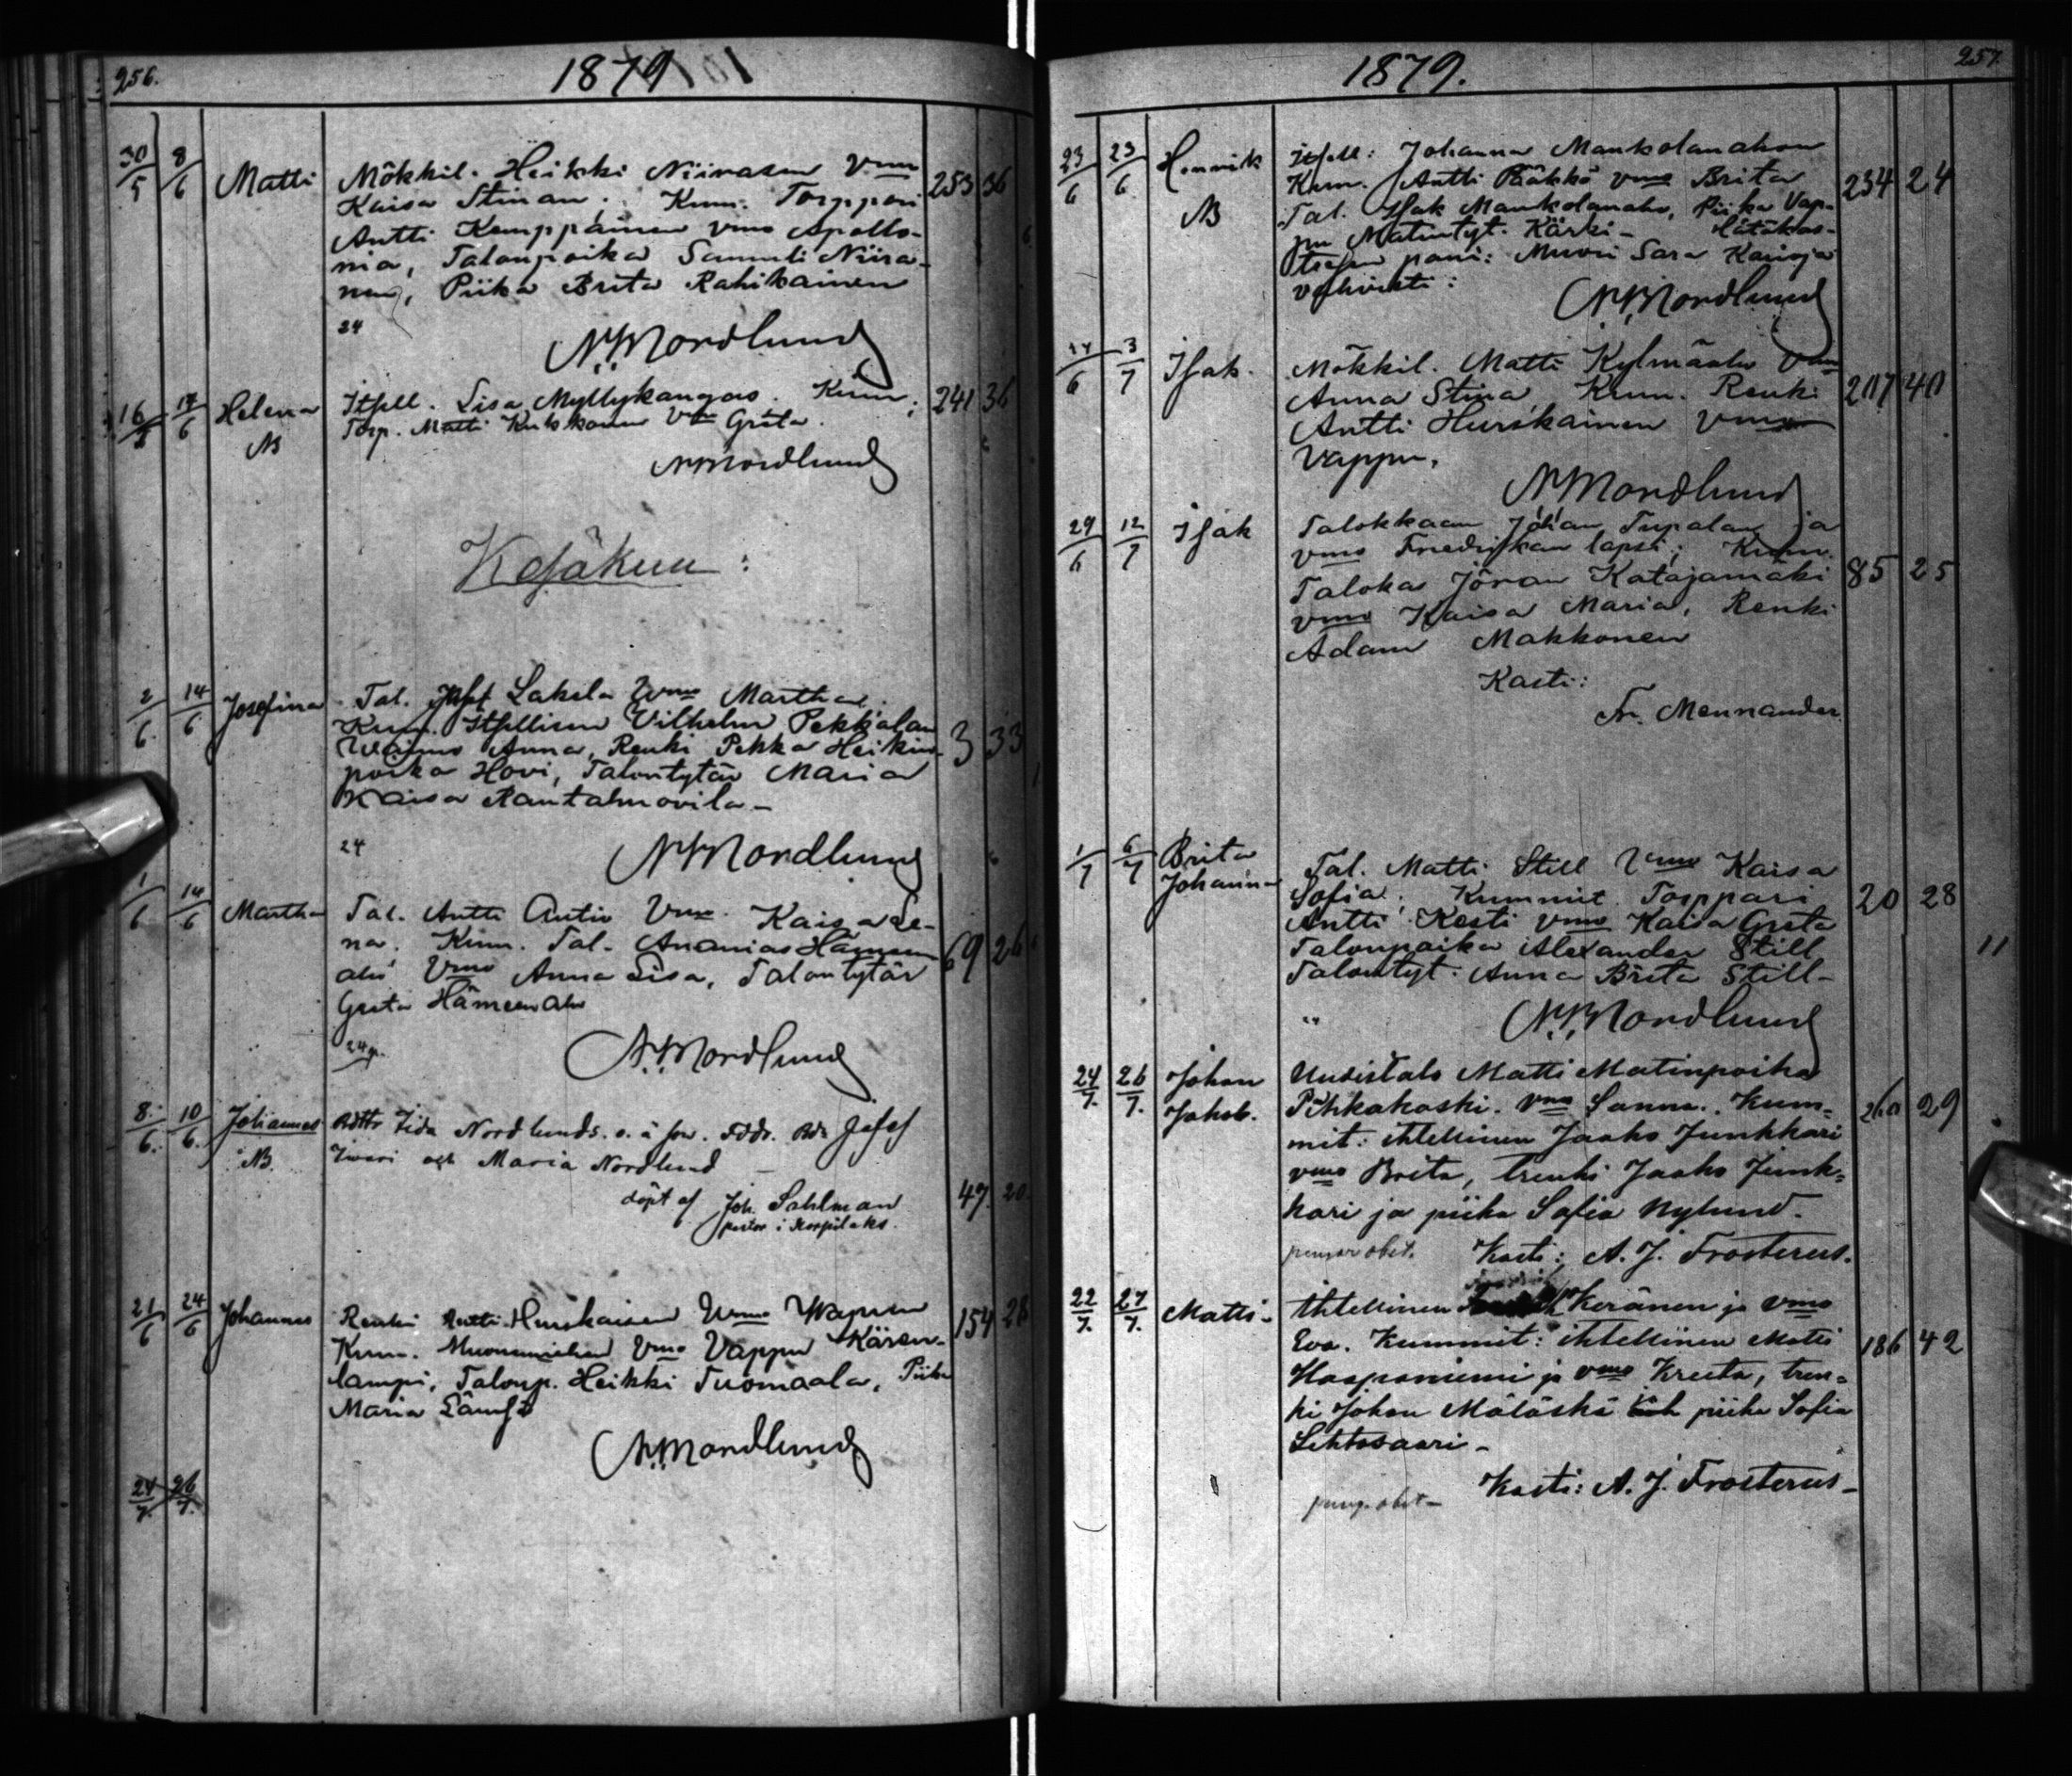 256.
1879
30/5 8/6 Matti Mökkil. Heikki Niirasen Vmo 253 36
Kaisa Stinan. Kum. Torppari
Antti Kemppainen vmo Apollo-
nia, Talonpoika Samuli Niira-
nen, Piika Brita Rahikainen
24
N.Nordlund
16/5 17/6 Helena Itsell. Lisa Myllykangas. Kum. 241 36
NB Torp. Matti Kukkonen Vmo Greta.
N.Nordlund
Kesäkuu:
2/6 14/6 Josefina Tal. Josef Laksela Vmo Marthan.
Kum. Itsellinen Vilhelm Pekkalan 3 33
Waimo Anna, Renki Pekka Heikin-
poika Hovi, Talontytär Maria
Kaisa
24
N.Nordlund
1/6 14/6 Martha Tal. Antti Autio Vmo Kaisa Le-
na. Kum. Tal. Ananias Hämeen 69 26
aho Vmo Anna Lisa, Talontytär
Greta Hämeenaho
24 p.
N.Nordlund
8/6. 10/6. Johannes Bdttr Iida Nordlunds o. ä. son. Fddr. Josef
NB. Iwari och Maria Nordlund
döpt af Joh. Sahlman 47. 20.
pastor i
21/6 24/6 Johannes Renki Antti Hurskaisen Vmo Wapun 154 28
Kum. Vmo Vappu Kären-
lampi, Talonp. Heikki Tuomaala, Piika
Maria
N.Nordlund
24/7. 26/7.
1879.
257.
23/6 23/6 Henrik Itsell: Johanna Mankolanahon
NB Kum. Antti Pääkkö vmo Brita 234 24
Tal. Isak Mankolanaho, Piika Vap-
pu Matintyt. Kärki- Hätäkas-
teesen pani: Muori Sara Karioja
vahvisti:
N.Nordlund
3/7 Isak. Mökkil. Matti Kylmäaho Vmo
6 Anna Stina Kum. Renki 207 40
Antti Hurskainen Vmo
Vappu.
N.Nordlund
29/6 12/7 Isak Talokkaan Johan Tupalan ja
vmo Fredrikan lapsi; Kum.
Talokas Jöran Katajamäki 85 25
vmo Kaisa Maria, Renki
Adam Makkonen
Kasti:
Fr. Mennander
1/7 6/7 Brita Johanna Tal. Matti Still Vmo Kaisa
Sofia. Kummit Torppari 20 28
Antti Kesti vmo Kaisa Greta
Talonpoika Alexander Still 11
Talontyt. Anna Brita Still-
N.Nordlund
24/7. 26/7. Johan Jakob. Uudistalo Matti Matinpoika
Pihkakoski. vmo Sanna. Kum= 260 29
mit: ihtellinen Jaako Junkkari
vmo Brita, trenki Jaako Junk=
kari ja piika Sofia Nylund.
Kasti: A. J. Frosterus.
22/7. 27/7. Matti- Ihtellinen Keränen ja vmo
Eva. Kummit: ihtellinen Matti 186 42
Haapaniemi ja vmo Kreeta, tren=
ki Johan Määttä piika Sofia
Lehtosaari-
Kasti: A. J. Frosterus-